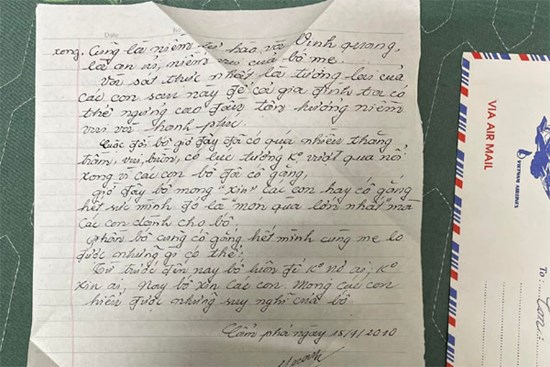 Date
xong. Cũng là niềm tự hào và Vinh quang,
là an ủi, niềm vui của bố mẹ.
Và sát thực nhất là tương lai của
các con sau này để cả gia đình ta có
thể ngẩng cao đầu tận hưởng niềm
vui và hạnh phúc
Cuộc đời bố giờ đây đã có quá nhiều thăng
trầm, vui, buồn, có lúc tưởng ko vượt qua nổi
xong vì các con bố đã cố gắng,
giờ đây bố mong "xin" các con hãy cố gắng
hết sức mình đó là "món quà lớn nhất" mà
các con dành cho bố.
Phần bố cũng cố gắng hết mình cùng mẹ lo
được những gì có thể.
Từ trước đến nay bố luôn để ko nợ ai, ko
xin ai, nay bố xin các con. Mong các con
hiểu được những suy nghĩ của bố
Cẩm phả ngày 15/4/2010
VIA AIR MAIL
VIETNAM AIRLINES
To: